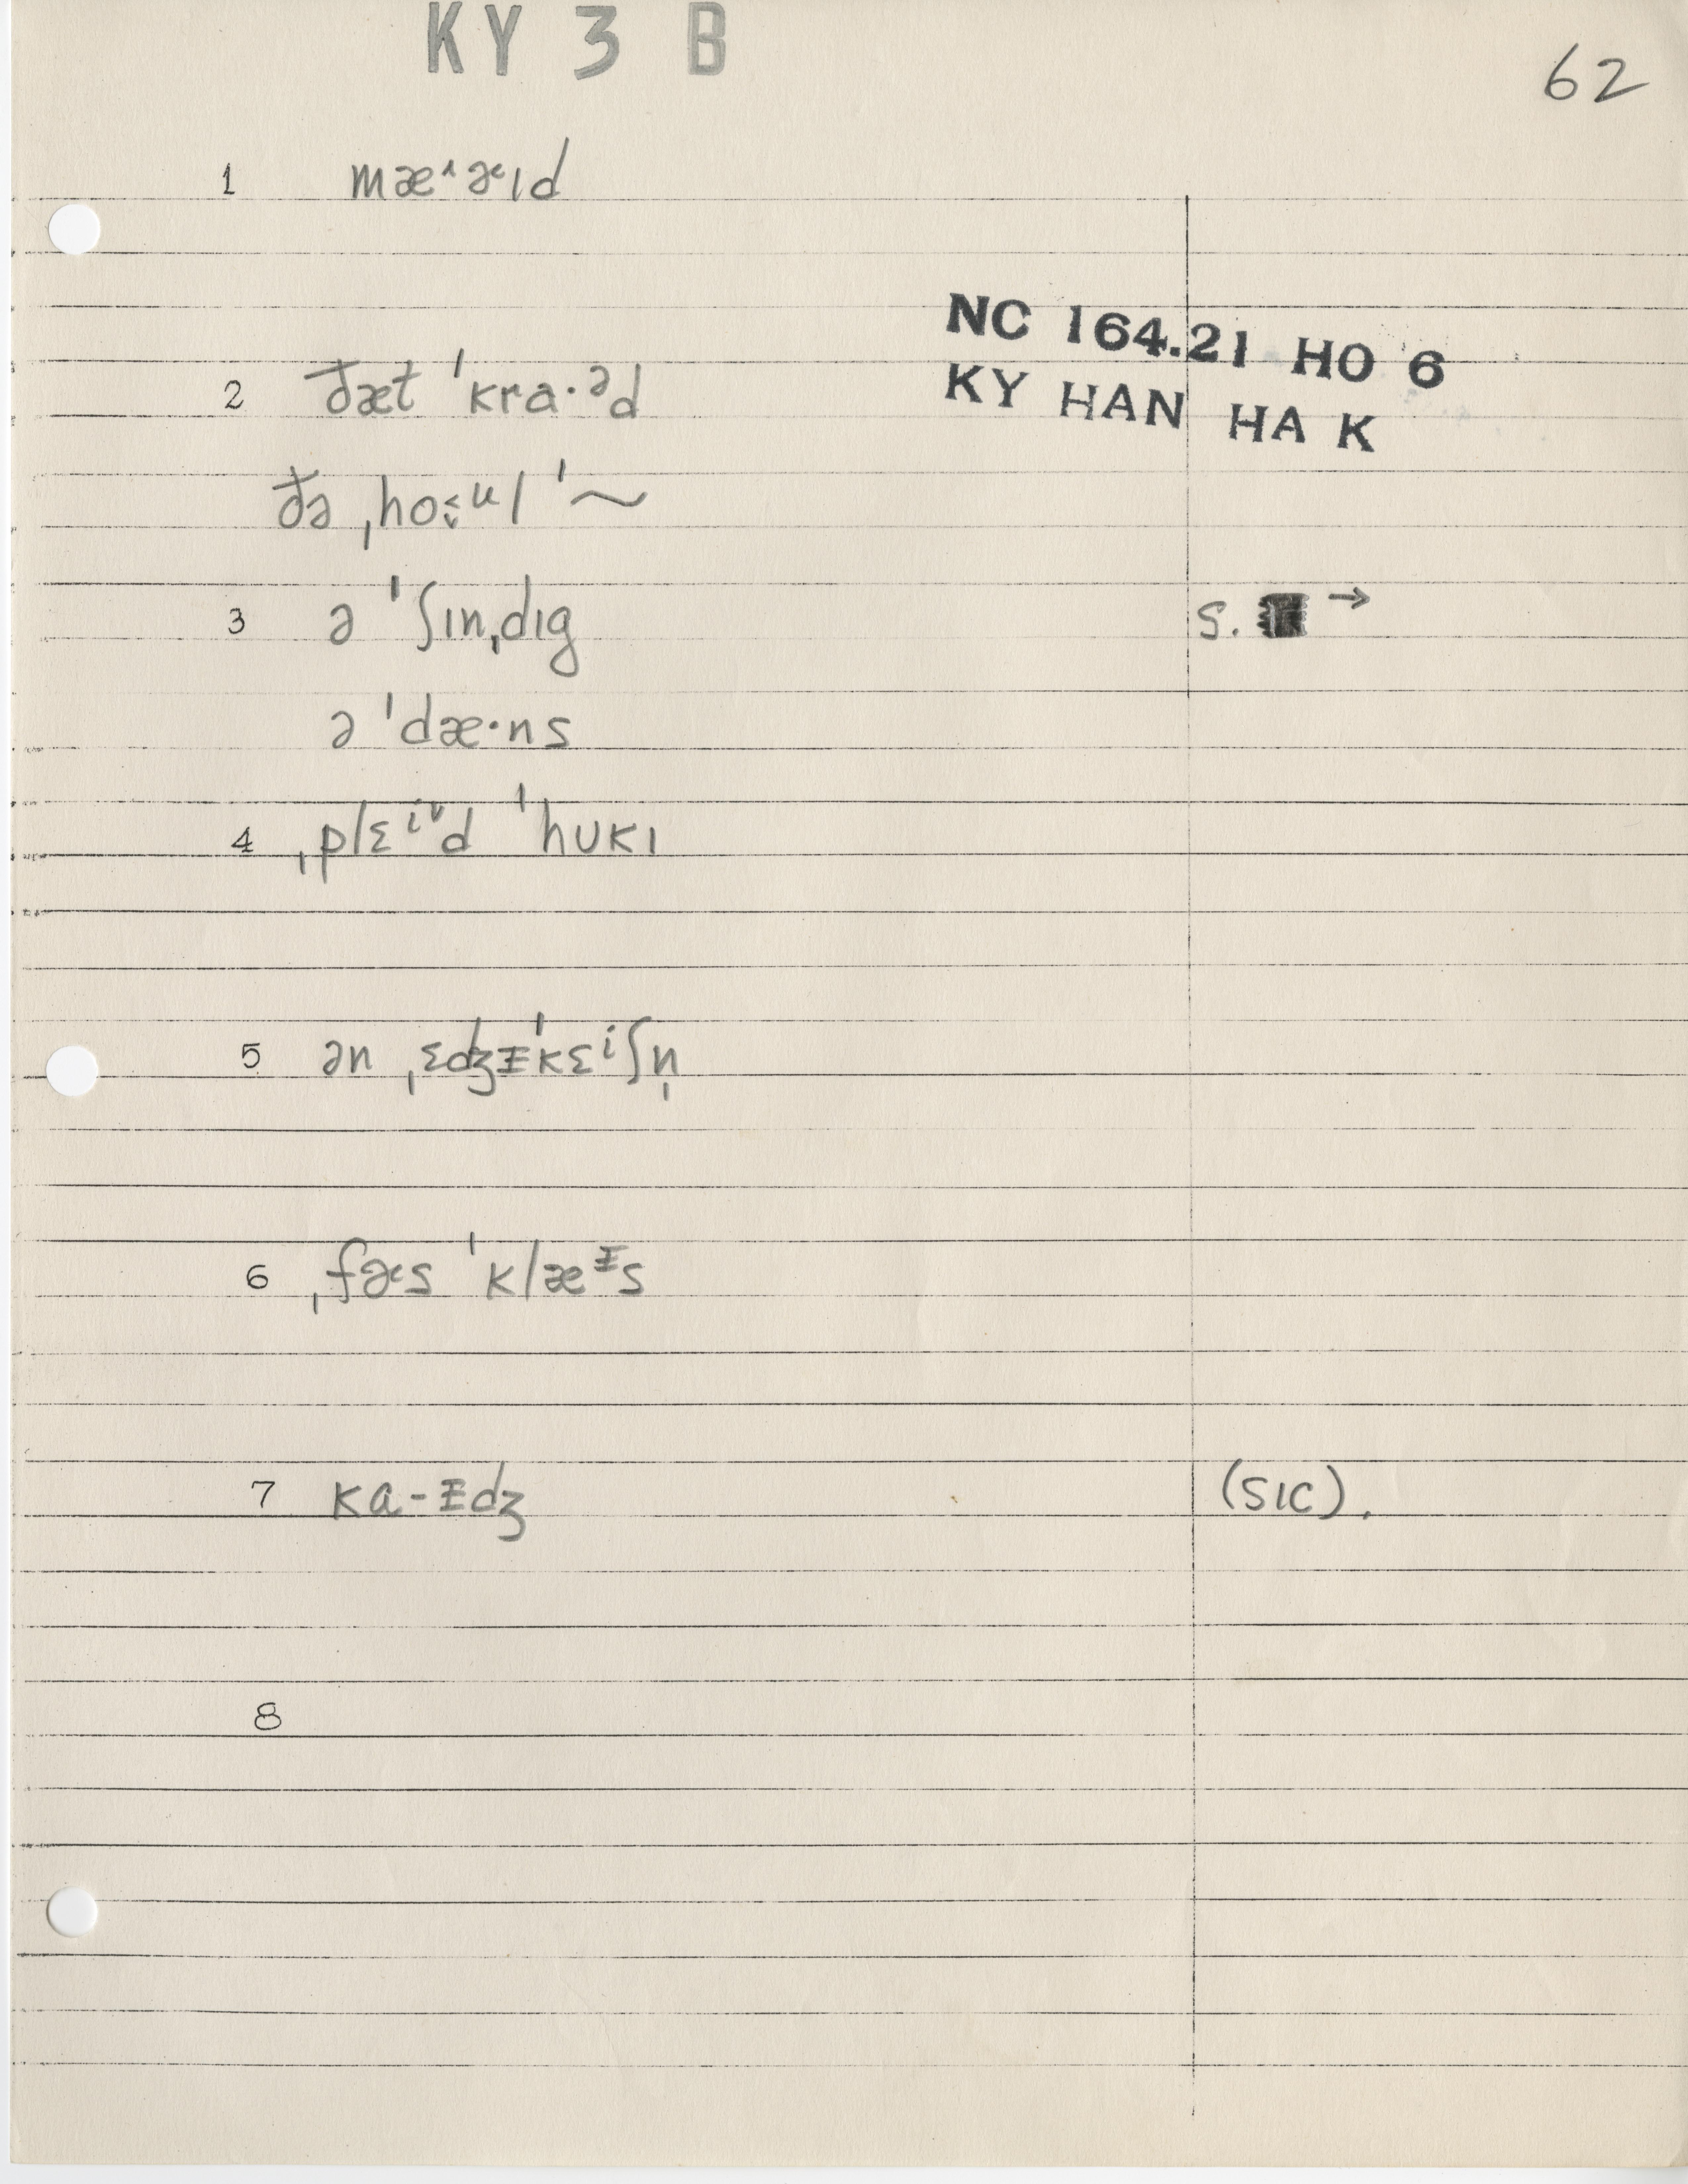 KY 3 B
62
1 mæ˄ɚɪd
NC 164.21 HO 6
KY HAN HA K
2 đæt ˈkra·ᵊd
đə ˌhoᵘl ˈ~
3 ə ˈʃɪnˌdɪg S. →
ə ˈdæ·ns
4 ˌplɛⁱ˅d ˈhʊkɪ
5 ən ˌɛdʒᵻˈkɛⁱʃn̩
6 ˌfɚs ˈklæᵻs
7 ka-ᵻdʒ (SIC).
8